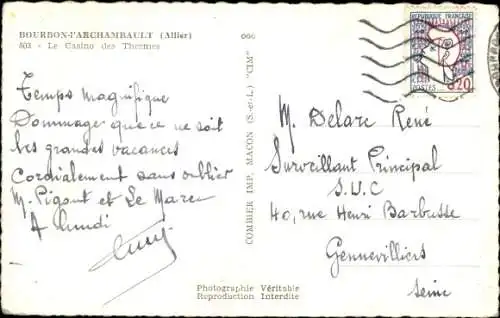 BOURBON-l'ARCHAMBAULT (Allier)
803 - Le Casino des Thermes
Temps magnifique
Dommage que ce ne soit
les grandes vacances
Cordialement sans oublier
M. Pigout et Le Marec
A lundi
COMBIER IMP. MACON (S.-et-L.) "CIM"
REPUBLIQUE FRANÇAISE
POSTES
0.20
M. Delarc René
Surveillant Principal
S.U.C
40, rue Henri Barbusse
Gennevilliers
Seine
Photographie Véritable
Reproduction Interdite